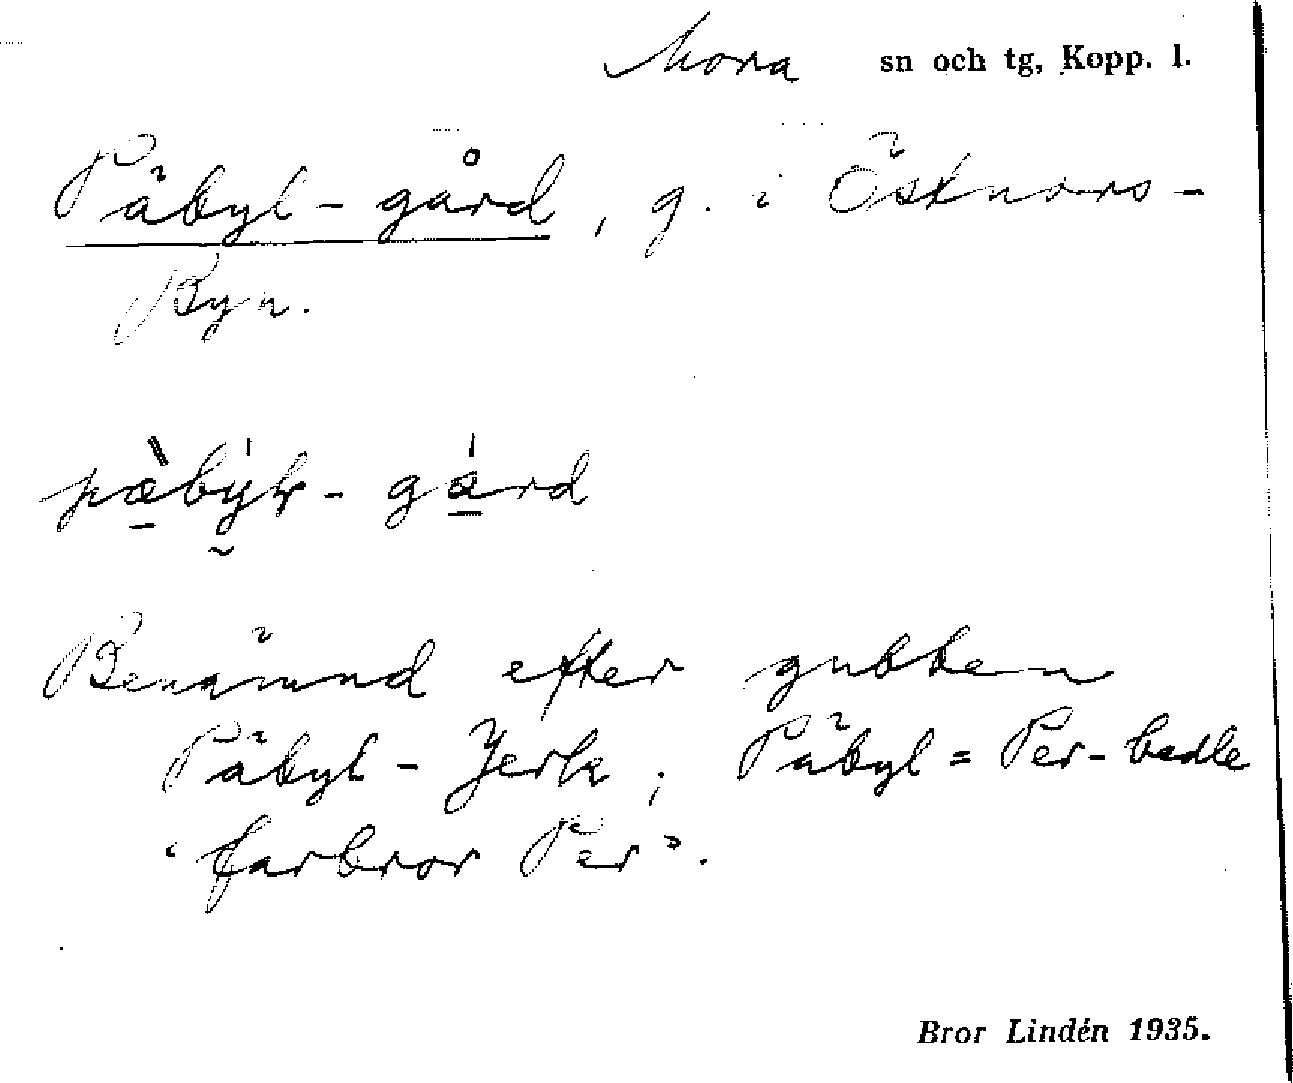 Mora sn och tg, Kopp. l.
Päbyl-gård, g. i Östnors-
Byn.
Benämnd efter gubben
Päbyl-Jerk; Päbyl = Per-badle
"farbror Per".
Bror Lindén 1935.